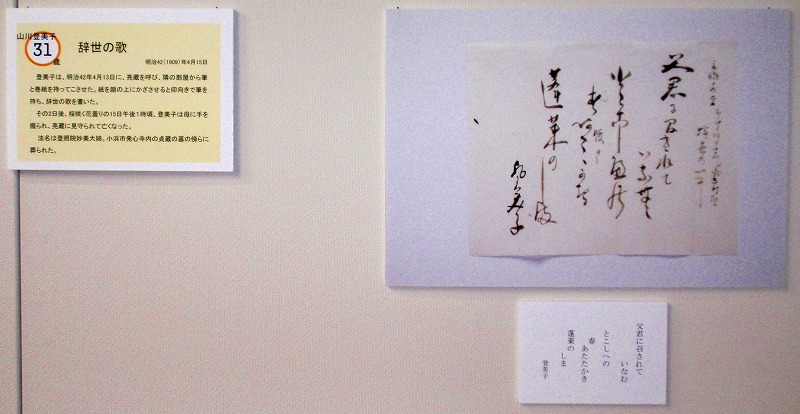 山川登美子
31
歳
辞世の歌
明治42(1909)年4月15日
登美子は、明治42年4月13日に、亮蔵を呼び、隣の部屋から筆
と巻紙を持ってこさせた。紙を顔の上にかざさせると仰向きで筆を
持ち、辞世の歌を書いた。
その2日後、桜咲く花曇りの15日午後1時頃、登美子は母に手を
握られ、亮蔵に見守られて亡くなった。
法名は登照院妙美大姉、小浜市発心寺内の貞蔵の墓の傍らに
葬られた。
父君に召されて
いなむ
とこしへの
春あたたかき
蓬莱のしま
登美子
父君に召されて
いなむ
とこしへの
春
あたたかき
蓬莱の しま
登美子